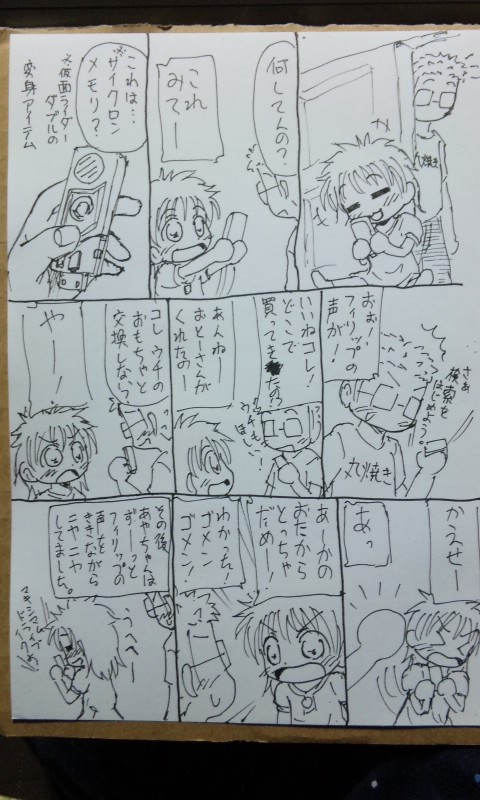 何してんの?
丸焼き
これ
みてー
これは…
ザイクロン
メモリ?
※仮面ライダー
ダブルの
変身アイテム
さぁ
検索を
はじめよう。
おぉ!
フィリップの
声が!
丸焼き
いいねコレ!
どこで
買ってきたの?
あんねー
おとーさんが
くれたのー
コレ ウチの
おもちゃと
交換しない?
やー!
かえせー
あっ
あーかの
おたから
とっちゃ
だめー!
わかった!
ゴメン
ゴメン!
その後
あやちゃんは
ずーっと
フィリップの
声を
ききながら
ニヤニヤ
してました。
うへへー
マキシマム
ドライブ